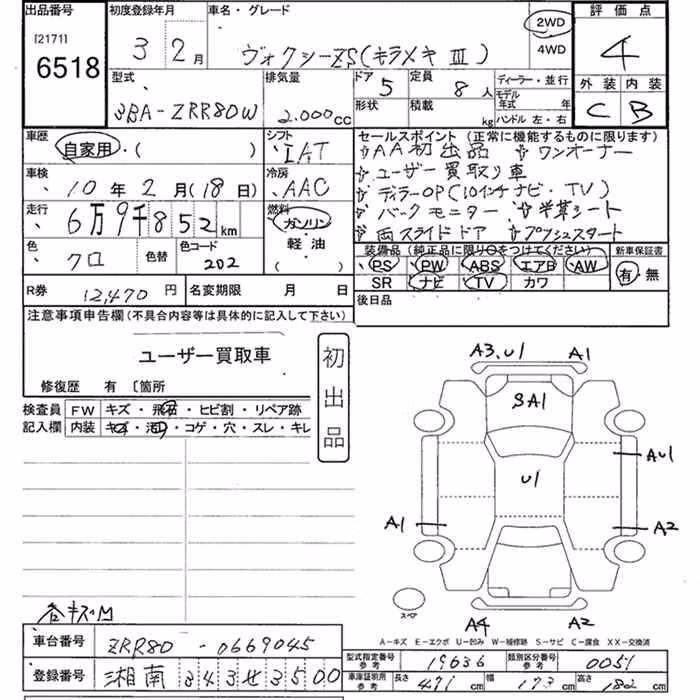 出品番号 初度登録年月 車名・グレード 評価点
[2171]
6518
3 2月 ヴォクシーZS(キラメキⅢ) 2WD 4WD 4
型式 排気量 ドア 定員 ディーラー・並行 外装 内装
3BA-ZRR80W 2.000cc 5 8人 モデル年式 年 C B
形状 積載 kg ハンドル 左・右
車歴 シフト セールスポイント (正常に機能するものに限ります)
自家用・( ) IAT ☆AA初出品 ☆ワンオーナー
車検 冷房 ☆ユーザー買取り車
10年2月(18日) AAC ☆ディラーOP(10インチナビ・TV)
走行 燃料 ☆バックモニター ☆半革シート
6万9千852km ガソリン ☆両スライドドア ☆プッシュスタート
色 色替 色コード 軽油 装備品 (純正品に限り○をつけてください) 新車保証書
クロ 202 ( ) PS PW ABS エアB AW 有・無
SR ナビ TV カワ
R券 12,470円 名変期限 月 日 後日品
注意事項申告欄(不具合内容等は具体的に記入して下さい)
ユーザー買取車
初出品
修復歴 有 〔箇所
検査員 FW キズ・飛石・ヒビ割・リペア跡
記入欄 内装 キズ・汚れ・コゲ・穴・スレ・キレ
A3.U1 A1
SA1
U1
AU1
A1 A2
スペア
A4 A2
キズM
A-キズ E-エクボ U-凹み W-補修跡 S-サビ C-腐食 XX-交換済
車台番号 ZRR80-0669045
型式指定番号 参考 19636 類別区分番号 参考 0051
登録番号 湘南 343 せ 3500
車庫証明用 参考 長さ 471cm 幅 173cm 高さ 182cm